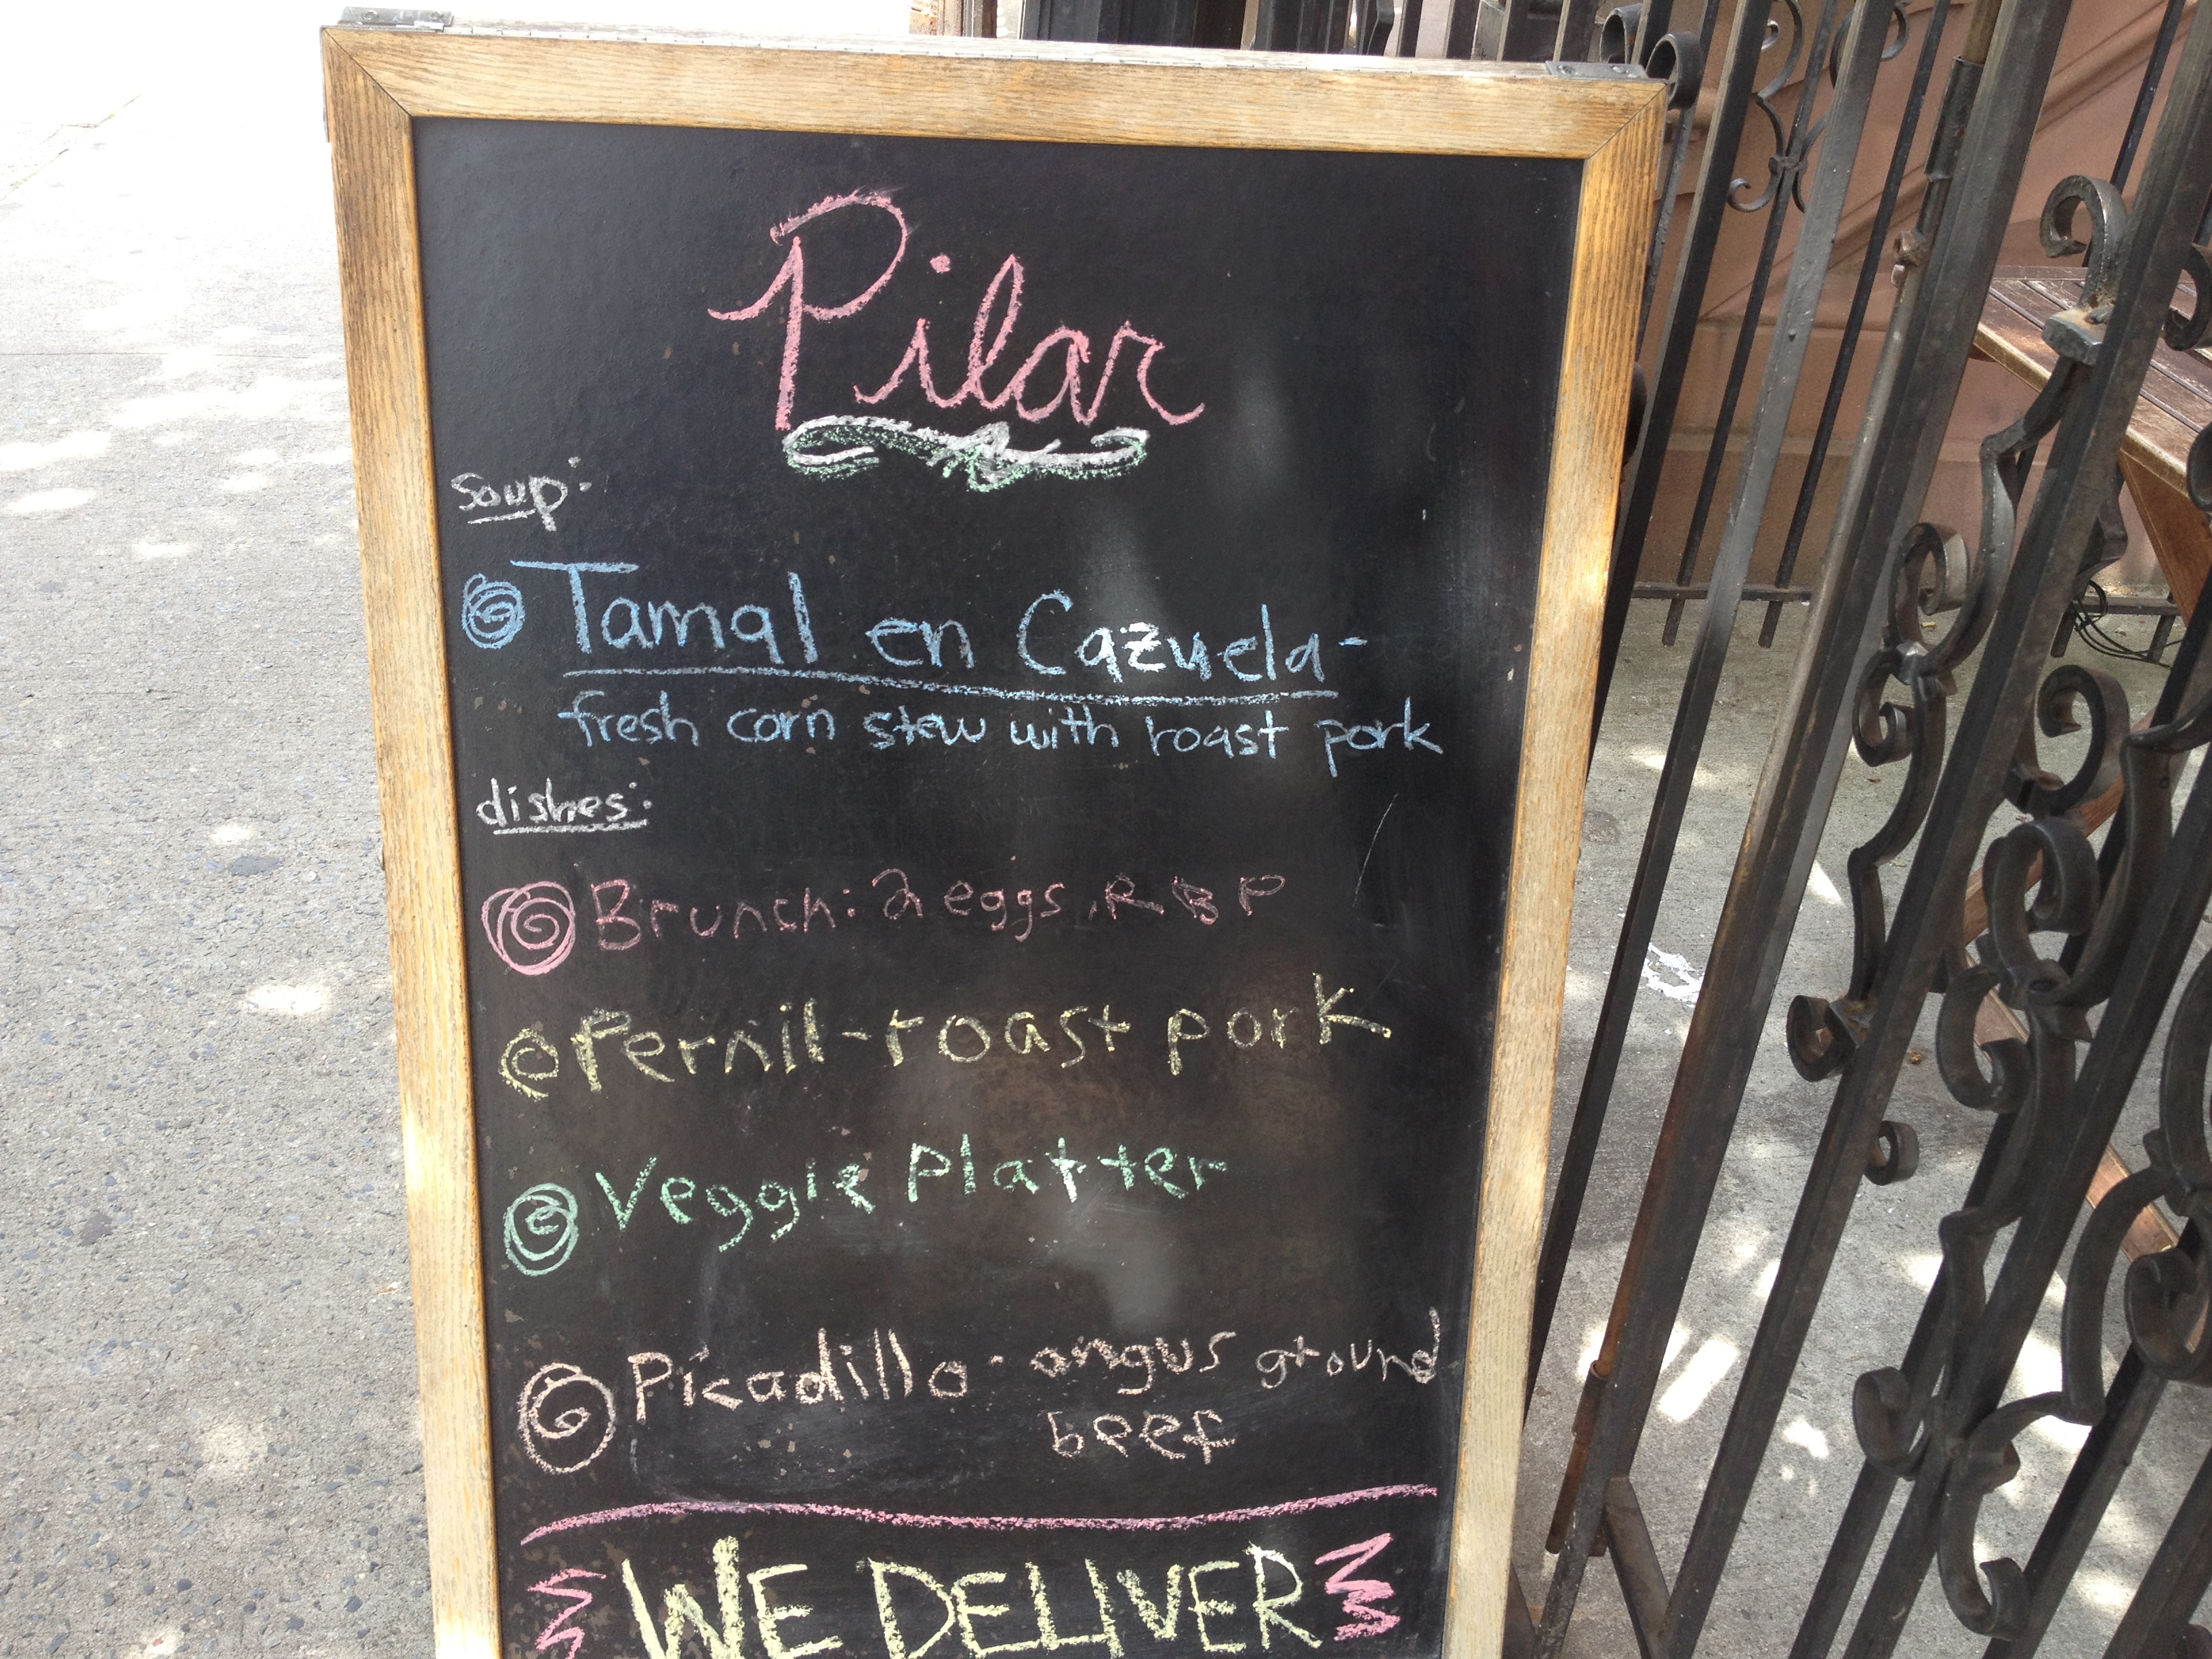 Pilar
soup:
Tamal en Cazuela-
fresh corn stew with roast pork
dishes:
Brunch: 2 eggs, R B P
Pernil-roast pork
Veggie Platter
Picadillo - angus ground
beef
WE DELIVER